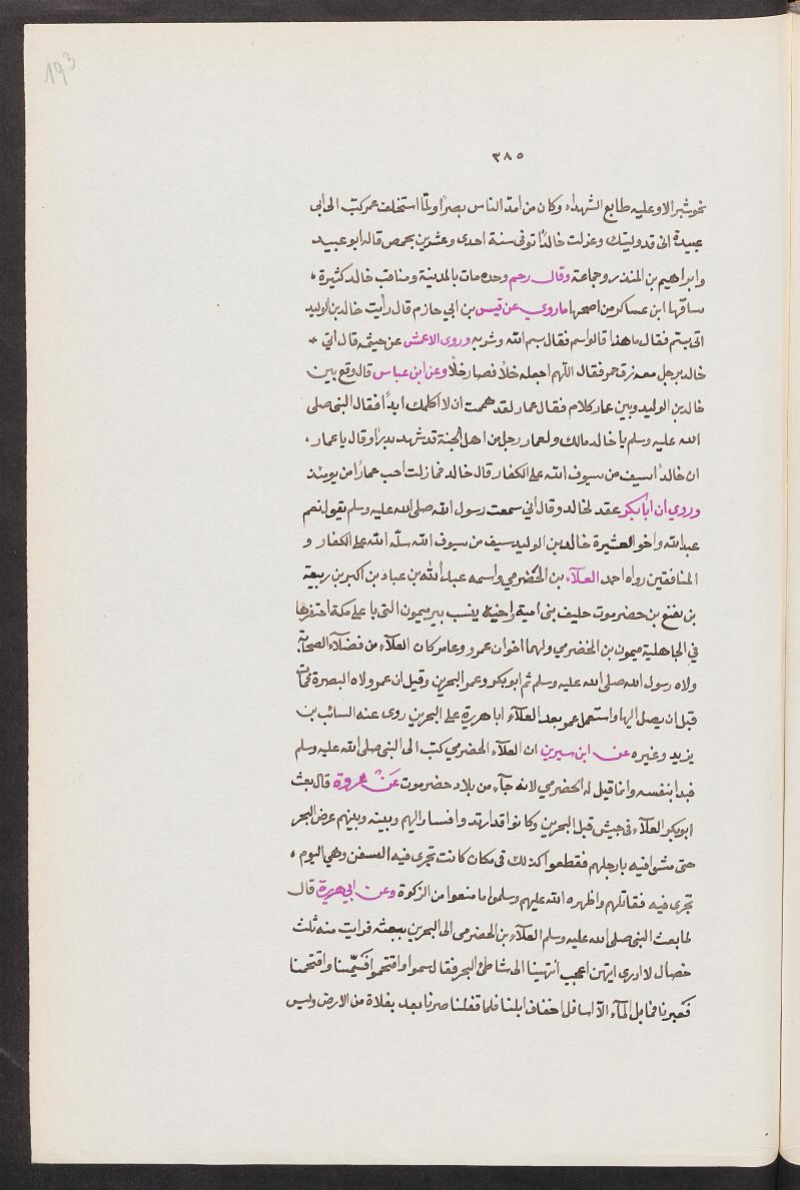 193
٣٨٥
نحو شبر الا وعليه طابع الشهداء وكان من امدّ الناس بصرًا ولمّا استخلف عمر كتب الى ابى
عبيدة انى قد وليتك وعزلت خالدًا توفى سنة احدى وعشرين بحمص قاله ابو عبيد
وابراهيم بن المنذر وجماعة وقال رحيم وحده مات بالمدينة ومناقب خالد كثيرة ،
ساقها ابن عساكر من اصحها ما روي عن قيس بن ابي حازم قال رأيت خالد بن الوليد
اتى بسّم فقال ما هذا قالوا سم فقال بسم الله وشربه وروى الاعمش عن خيثمه قال اتى
خالد برجل معه زق خمر فقال اللّهم اجعله خلًا فصار خلًا وعن ابن عباس قال وقع بين
خالد بن الوليد وبين عمار كلام فقال عمار لقد هممت ان لا اكلمك ابدًا فقال النبى صلى
الله عليه وسلم يا خالد مالك ولعمار رجل من اهل الجنة قد شهد بدرًا وقال يا عمار ،
ان خالدًا سيف من سيوف الله على الكفار قال خالد فما زلت احب عمارًا من يومئذ
وروي ان ابا بكر عقد لخالد وقال اني سمعت رسول الله صلى الله عليه وسلم يقول نعم
عبد الله واخو العشيرة خالد بن الوليد سيف من سيوف الله سلّه الله على الكفار و
المنافقين رواه احمد العلآء بن الحضرمي واسمه عبد الله بن عباد بن اكبر بن ربيعة
بن مقنع بن حضرموت حليف بنى امية واخيه ينسب بير ميمون التى با على مكة احتفرها
في الجاهلية ميمون بن الحضرمي ولهما اخوان عمرو وعامر كان العلآء من فضلآء الصحابة
ولاه رسول الله صلى الله عليه وسلم ثم ابو بكر وعمر البحرين وقيل ان عمر ولاه البصرة فمات
قبل ان يصل اليها واستعمل عمر بعد العلآء ابا هريرة على البحرين روى عنه السائب بن
يزيد وغيره عن ابن سيرين ان العلآء الحضرمي كتب الى النبى صلى الله عليه وسلم
فبدا بنفسه وانما قيل له الحضرمي لانه جآء من بلاد حضرموت عن عروة قال بعث
ابو بكر العلآء فى جيش قبل البحرين وكانوا قد ارتدوا فسار اليهم وبينه وبينهم عرض البحر
حتى مشوا فيه بارجلهم فقطعوا كذلك فى مكان كانت تجرى فيه السفن وهي اليوم ،
تجرى فيه فقاتلهم واظهره الله عليهم وسلموا ما منعوا من الزكوة وعن ابي هريرة قال
لما بعث النبى صلى الله عليه وسلم العلآء بن الحضرمى الى البحرين ببعثه فرايت منه ثلث
خصال لا ادرى ايتهن اعجب انتهينا الى شاطئ البحر فقال سموا واقتحموا فسمّينا واقتحمنا
فعبرنا فما بل المآء الاّ اسافل اخفاف ابلنا فلما قفلنا صرنا بعد بفلاة من الارض وليس